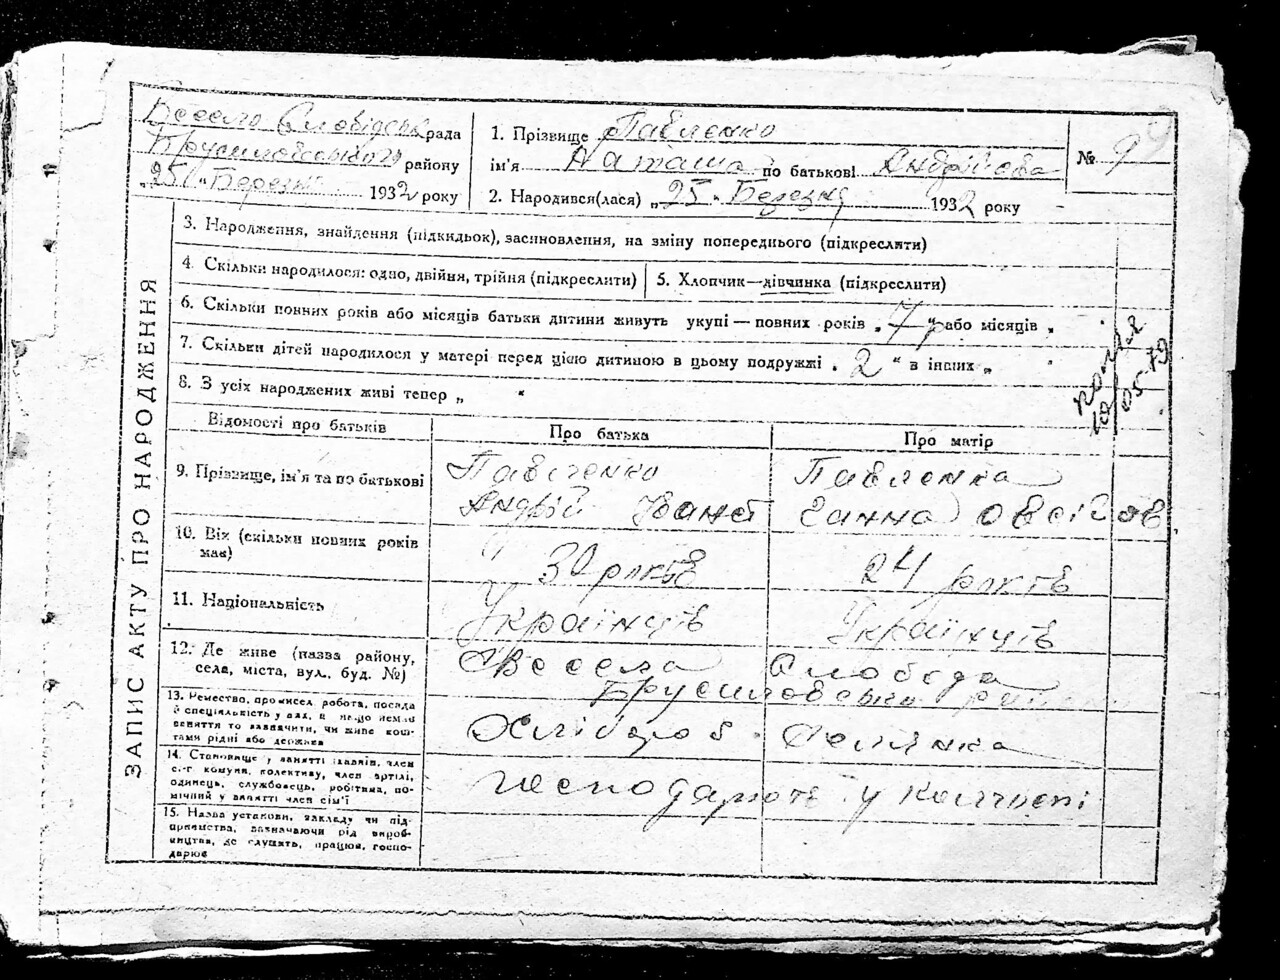 Весело Слобідськ рада
Брусиловського району
„25“ Березня 1932 року
1. Прізвище Павленко
ім'я Наташа по батькові Андрійова
2. Народився(лася) „25“ Березня 1932 року
№ 9
ЗАПИС АКТУ ПРО НАРОДЖЕННЯ
3. Народження, знайдення (підкидьок), засиновлення, на зміну попереднього (підкреслити)
4. Скільки народилося: одно, двійня, трійня (підкреслити)
5. Хлопчик—дівчинка (підкреслити)
6. Скільки повних років або місяців батьки дитини живуть укупі — повних років „7“ або місяців „
7. Скільки дітей народилося у матері перед цією дитиною в цьому подружжі „2“ в інших „ “
8. З усіх народжених живі тепер „ “
Відомості про батьків
Про батька
Про матір
9. Прізвище, ім'я та по батькові
Павленко
Андрій Іванов
Павленка
Ганна Овсійов
10. Вік (скільки повних років має)
30 років
24 років
11. Національність
Українців
Українців
12. Де живе (назва району, села, міста, вул. буд. №)
Весела Слобода
Брусиловського
13. Ремество, промисел, робота, посада й спеціяльність у них, а якщо немає заняття то зазначити, чи живе коштами рідні або держави
Хлібороб.
Селянка
14. Становище у занятті хазяїн, член с.-г комуни, колективу, член артілі, одинець, службовець, робітник, помічний у занятті член сім'ї
господарюють у колгоспі
15. Назва установи, закладу чи підприємства, зазначаючи рід виробництва, де служать, працює, господарює